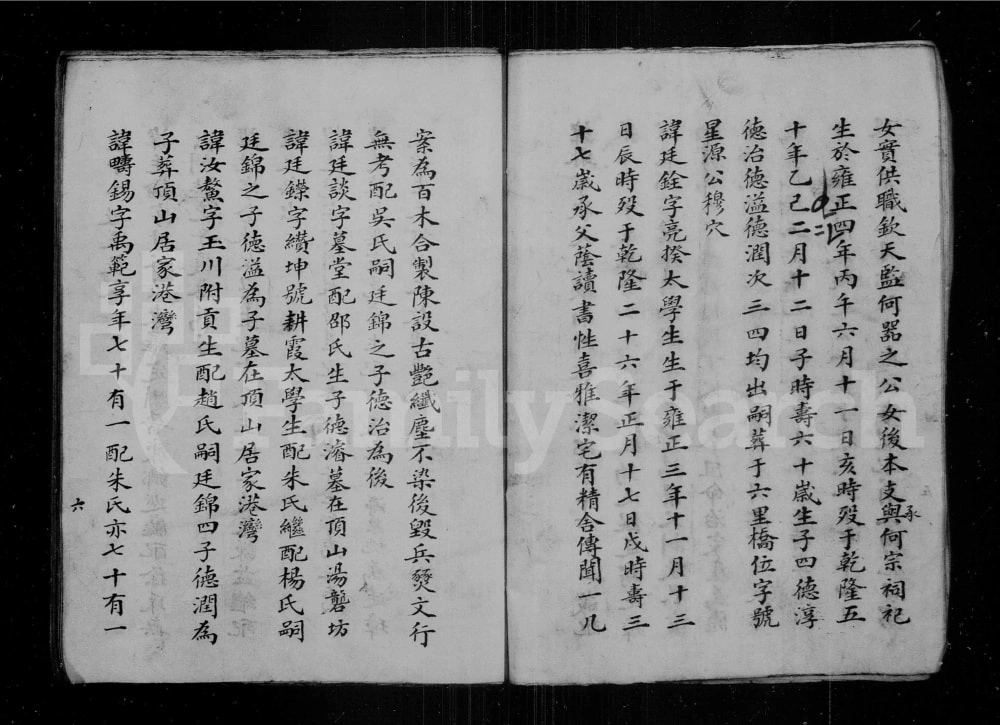 女實供職欽天監何器之公女後本支與何宗祠祀
承
生於雍正四年丙午六月十一日亥時殁于乾隆五
十年乙巳二月十二日子時壽六十歲生子四德淳
德治德溢德潤次三四均出嗣葬于六里橋位字號
星源公穆穴
諱廷銓字亮揆太學生生于雍正三年十一月十三
日辰時殁于乾隆二十六年正月十七日戌時壽三
十七歲承父蔭讀書性喜雅潔宅有精舍傳聞一几
案為百木合製陳設古艷纖塵不染後毀兵燹文行
無考配吳氏嗣廷錦之子德治為後
諱廷談字墓堂配邵氏生子德濬墓在頂山湯礱坊
諱廷鑅字纘坤號耕霞太學生配朱氏繼配楊氏嗣
廷錦之子德溢為子墓在頂山居家港灣
諱汝鰲字玉川附貢生配趙氏嗣廷錦四子德潤為
子葬頂山居家港灣
諱疇錫字禹範享年七十有一配朱氏亦七十有一
六
FamilySearch